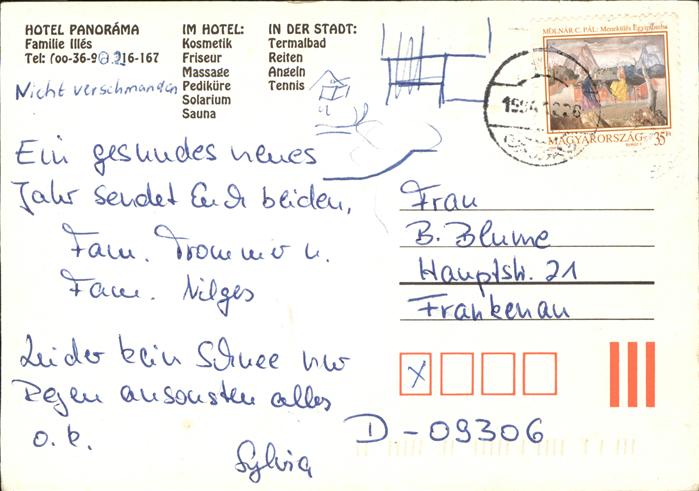 HOTEL PANORÁMA
Familie Illés
Tel: (oo-36-9 216-167
IM HOTEL:
Kosmetik
Friseur
Massage
Pediküre
Solarium
Sauna
IN DER STADT:
Termalbad
Reiten
Angeln
Tennis
Nicht verschmanden
MOLNÁR C. PÁL: Menekülés Egyiptomba
MAGYARORSZÁG 35Ft
Ein gesundes neues
Jahr sendet Euch beiden,
Fam. Trommer u.
Fam. Nilges
Leider kein Schnee nur
Regen ansonsten alles
o.k.
Sylvia
Frau
B. Blume
Hauptstr. 21
Frankenau
X
D-09306